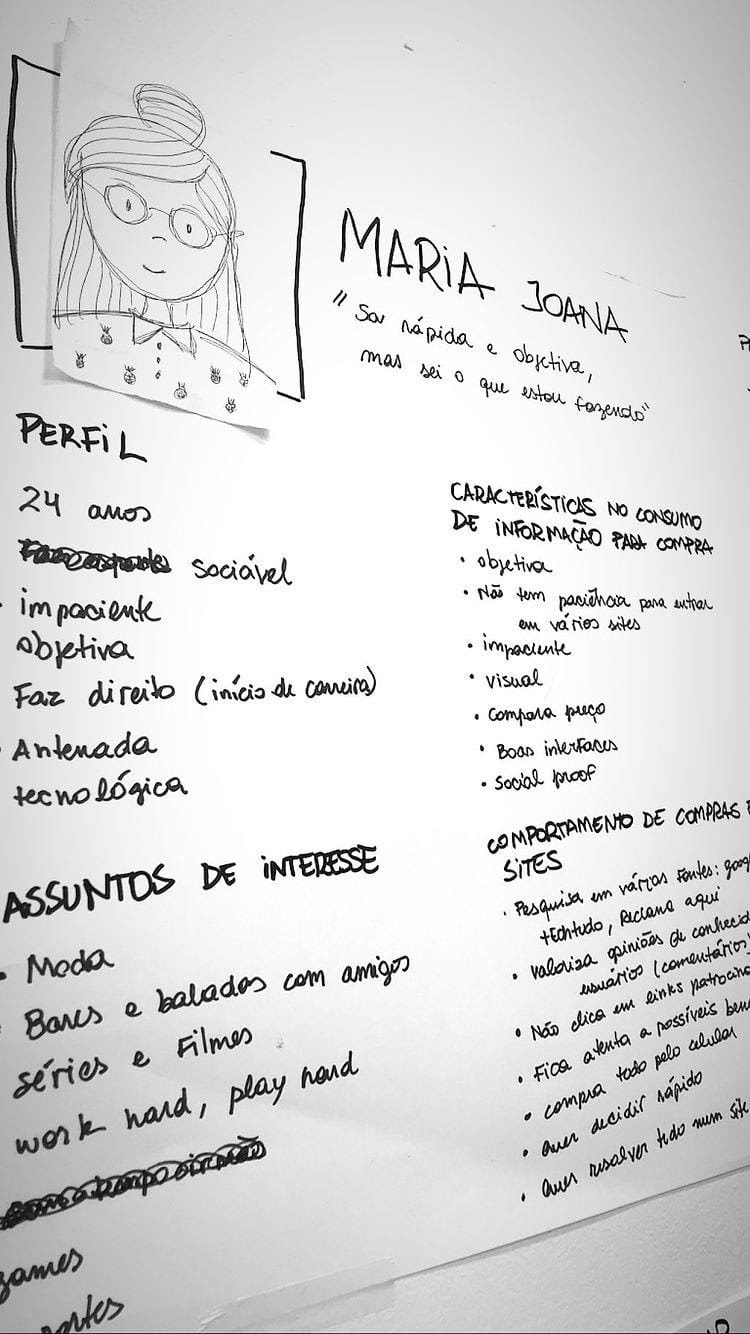 MARIA JOANA
"Sou rápida e objetiva,
mas sei o que estou fazendo"
PERFIL
24 anos
sociável
impaciente
objetiva
Faz direito (início de carreira)
Antenada
tecnológica
ASSUNTOS DE INTERESSE
• Moda
Bares e baladas com amigos
séries e Filmes
work hard, play hard
games
CARACTERÍSTICAS NO CONSUMO
DE INFORMAÇÃO PARA COMPRA
• objetiva
• Não tem paciência para entrar
em vários sites
• impaciente
• visual
• compara preço
• Boas interfaces
• Social proof
COMPORTAMENTO DE COMPRAS E
SITES
• Pesquisa em várias Fontes: goog
techtudo, Reclame aqui
• valoriza opiniões de conhecid
usuários (comentários)
• Não clica em links patrocina
• Fica atenta a possíveis bene
• compra todo pelo celular
• Quer decidir rápido
• Quer resolver tudo num site